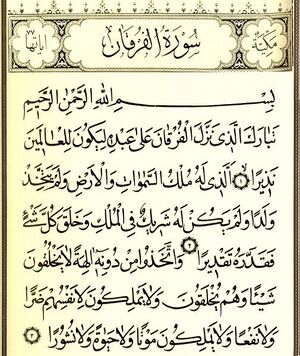 مكية
سورة الفرقان
٧٧
اياتها
بسم الله الرحمن الرحيم
تبارك الذى نزل الفرقان على عبده ليكون للعالمين
نذيرا ١ الذى له ملك السموات والارض ولم يتخذ
ولدا ولم يكن له شريك فى الملك وخلق كل شىء
فقدره تقديرا ٢ واتخذوا من دونه الهة لا يخلقون
شيئا وهم يخلقون ولا يملكون لانفسهم ضرا
ولا نفعا ولا يملكون موتا ولا حيوة ولا نشورا ٣